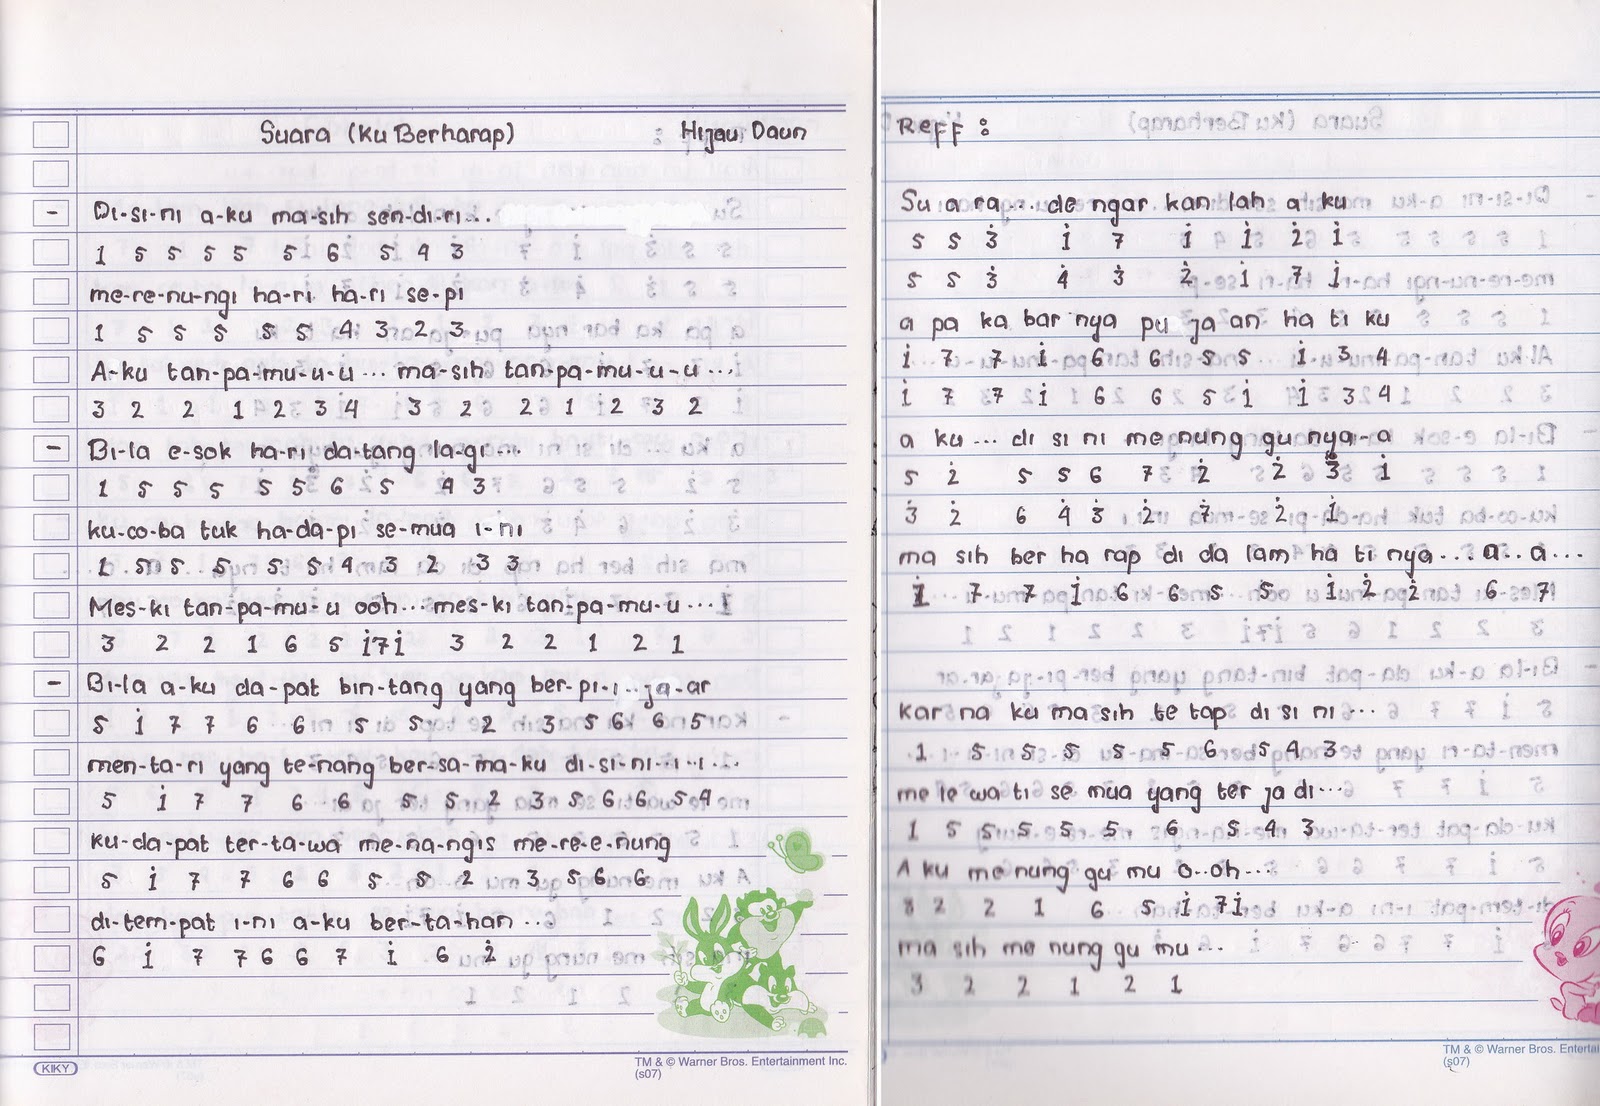 Suara (Ku Berharap) : Hijau Daun
- Di-si-ni a-ku ma-sih sen-di-ri...
1 5 5 5 5 5 6 5 4 3
me-re-nu-ngi ha-ri ha-ri se-pi
1 5 5 5 5 5 4 3 2 3
A-ku tan-pa-mu-u-u... ma-sih tan-pa-mu-u-u...
3 2 2 1 2 3 4 3 2 2 1 2 3 2
- Bi-la e-sok ha-ri da-tang la-gi...
1 5 5 5 5 5 6 5 4 3
ku-co-ba tuk ha-da-pi se-mua i-ni
1 5 5 5 5 5 4 3 2 3 3
Mes-ki tan-pa-mu-u ooh... mes-ki tan-pa-mu-u...
3 2 2 1 6 5 i̇ 7 i̇ 3 2 2 1 2 1
- Bi-la a-ku da-pat bin-tang yang ber-pi-i..ja-ar
5 i̇ 7 7 6 6 5 5 2 3 5 6 6 5
men-ta-ri yang te-nang ber-sa-ma-ku di-si-ni-i-i...
5 i̇ 7 7 6 6 5 5 2 3 5 6 6 5 4
ku-da-pat ter-ta-wa me-na-ngis me-re-e-nung
5 i̇ 7 7 6 6 5 5 2 3 5 6 6
di-tem-pat i-ni a-ku ber-ta-han...
6 i̇ 7 7 6 6 7 i̇ 6 2̇
KIKY
TM & © Warner Bros. Entertainment Inc.
(s07)
Reff :
Su a ra... de ngar kan lah a ku
5 5 3̇ i̇ 7 i̇ i̇ 2̇ i̇
5 5 3̇ 4̇ 3̇ 2̇ i̇ 7 i̇
a pa ka bar nya pu ja an ha ti ku
i̇ 7 7 i̇ 6 6 5 5 i̇ 3 4
i̇ 7 7 i̇ 6 6 5 i̇ i̇ 3 4
a ku... di si ni me nung gu nya-a
5 2̇ 5 5 6 7 2̇ 2̇ 3̇ i̇
3̇ 2̇ 6 4̇ 3̇ 2̇ 7 2̇ i̇
ma sih ber ha rap di da lam ha ti nya... a.. a...
i̇ 7 7 i̇ 6 6 5 5 i̇ 2̇ 2̇ 6 7
kar na ku ma sih te tap di si ni...
1 5 5 5 5 5 6 5 4 3
me le wa ti se mua yang ter ja di...
1 5 5 5 5 6 5 4 3
A ku me nung gu mu o..oh...
3 2 2 1 6 5 i̇ 7 i̇
ma sih me nung gu mu...
3 2 2 1 2 1
TM & © Warner Bros.
(s07)